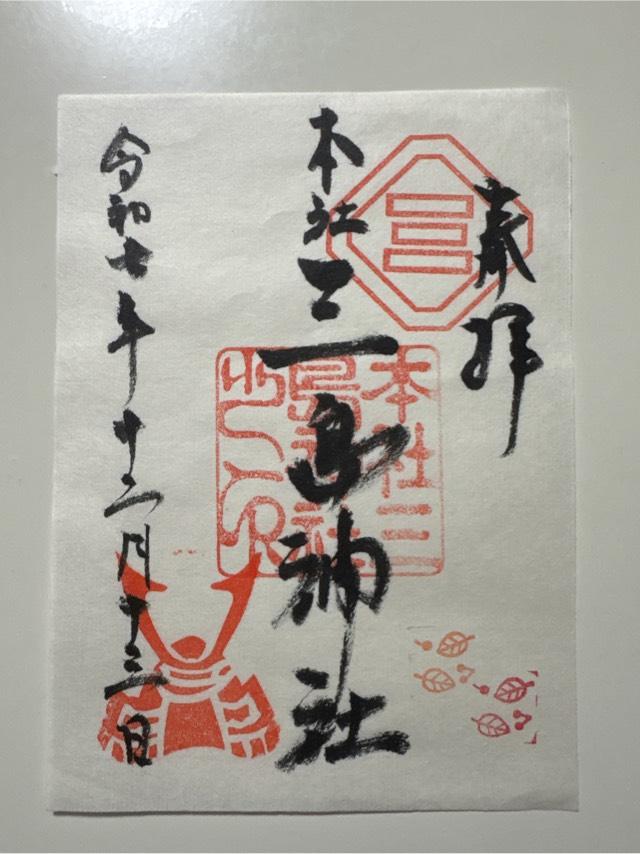 奉拝
本社三島神社
令和七年十二月十三日
本社三
島神社